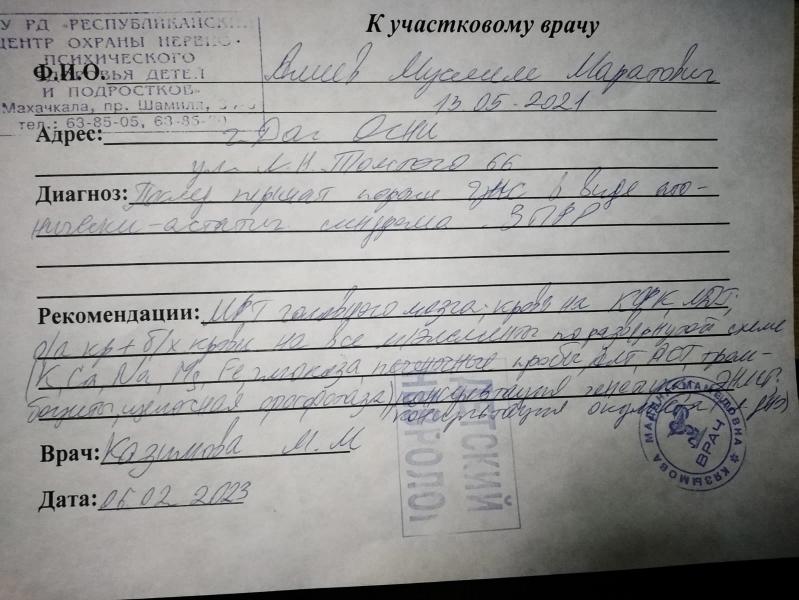 У РД «РЕСПУБЛИКАНСКИ
ЦЕНТР ОХРАНЫ НЕРВНО-
ПСИХИЧЕСКОГО
ЗДОРОВЬЯ ДЕТЕЙ
И ПОДРОСТКОВ»
Махачкала, пр. Шамиля,
тел.: 63-85-05, 63-85-
К участковому врачу
Ф.И.О. Алиев Муслим Маратович
13.05-2021
Адрес: г. Даг Огни
ул. Л.Н. Толстого 66
Диагноз: перинат пораж ЦНС в виде ато-
нически-астатич синдрома. ЗПРР
Рекомендации: МРТ головного мозга; кровь на КФК, ЛДГ;
о/а кр + б/х крови на все м/элементы по развернутой схеме
(K, Ca, Na, Mg, Fe, глюкоза, печеночные пробы АЛТ, АСТ, тром-
боциты, щелочная фосфотаза) консультация генетика,
консультация окулиста
Врач: Казимова М.М
Дата: 06.02.2023
ДЕТСКИЙ
НЕВРОЛОГ
КЯЗЫМОВА МАДИНА МАМЕДОВНА
ВРАЧ